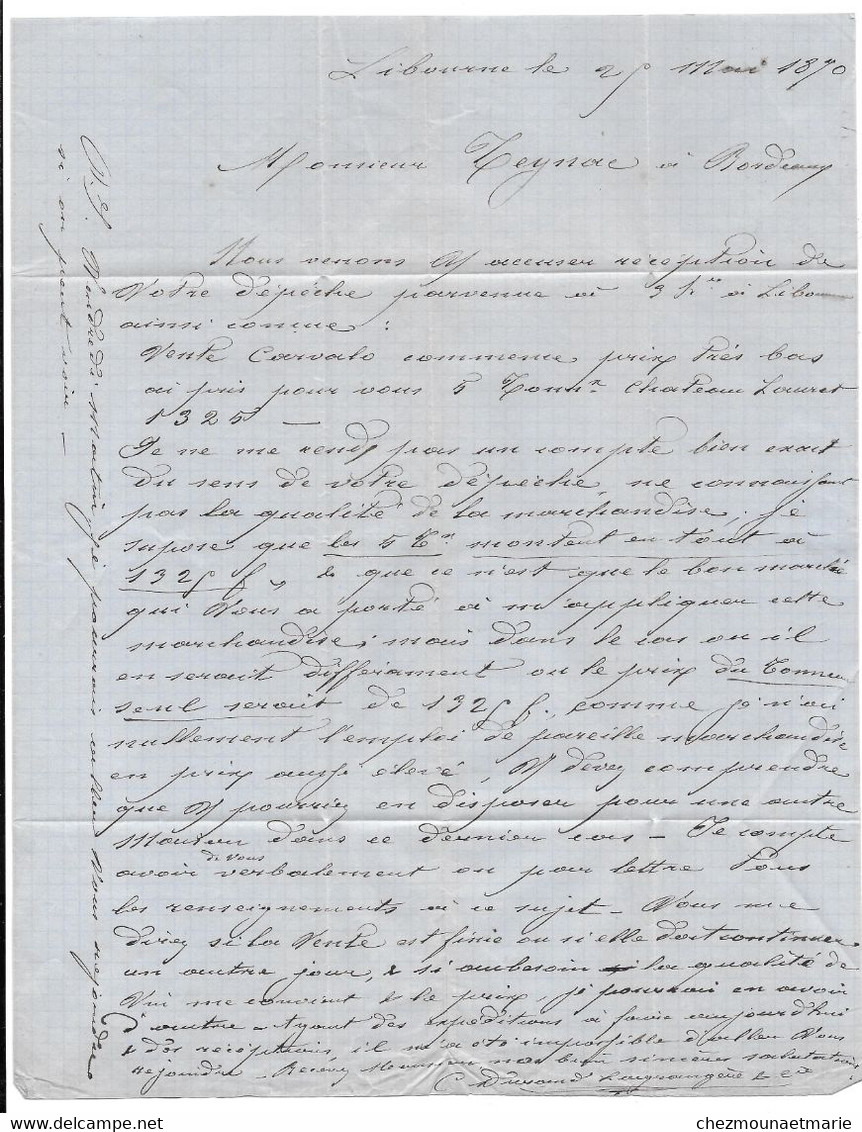 Libourne le 25 Mai 1870
Monsieur Teynac à Bordeaux
Nous venons accuser réception de
Votre dépêche parvenue à 3 h à Libourne
ainsi conçue :
Vente Carvalo commence prix très bas
ai pris pour vous 5 Tonnx Chateau Louret
1325 —
Je ne me rends pas un compte bien exact
du sens de votre dépêche, ne connaissant
pas la qualité de la marchandise, je
supose que les 5 Tx montent en tout à
1325 f, & que ce n'est que le bon marché
qui Vous a porté à m'appliquer cette
marchandise; mais dans le cas ou il
en serait différament ou le prix du Tonneau
seul serait de 1325 f., comme je n'ai
nullement l'emploi de pareille marchandise
en prix aussi élevé, devez comprendre
que pourriez en disposer pour une autre
Maison dans ce dernier cas — Je compte
avoir de Vous verbalement ou par lettre Tous
les renseignements à ce sujet — Vous me
direz si la Vente est finie ou si elle doit continuer
un autre jour, & si au besoin la qualité de
Vin me convient & le prix, je pourrai en avoir
d'autre — Ayant des expéditions à faire aujourd'hui
& des réceptions, il m'a été impossible d'aller Vous
rejoindre — Recevez Monsieur nos bien sincères salutations
Durand Lagrangère & Cie
Vendredi Matin je pourrais aller Vous rejoindre
si on peut voir —
chezmounaetmarie - www.delcampe.net